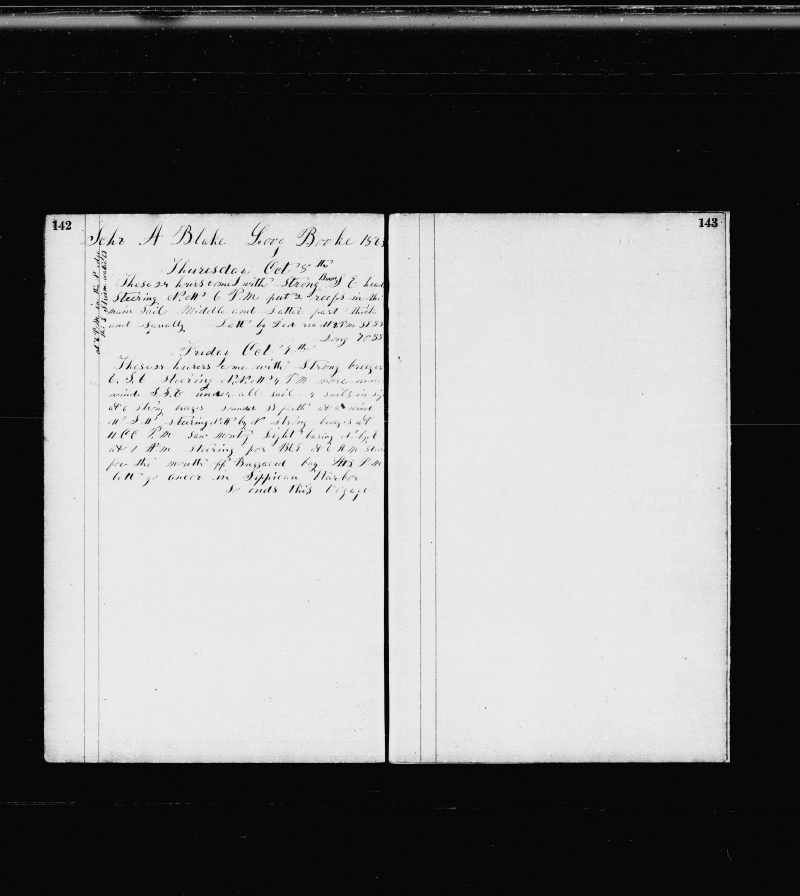 142
Schr A Blake Loog Booke 186
Thuresday Oct 8 th
These 24 hours comes with Strong Brees S E head
Steering N. W 6 P. M put 2 reefs in the
main Sail Middle and Latter part thick
and squally Latt by Ded
Long 70 55
Friday Oct 9 th
These 24 hours come with Strong breezes
E. S. E Steering N. N. W 4 P M more
wind S. S. E under all sail 4 sails in si
at 6 strong breezes at 8 wind
W S. W steering N. W by N strong breezes at
11 P. M Saw light baring N. by E
at 1 A. M steering for at 6 A. M
for the mouth off bay P M
lett go ancor in Sippican Harbor
So ends this Vogage
143